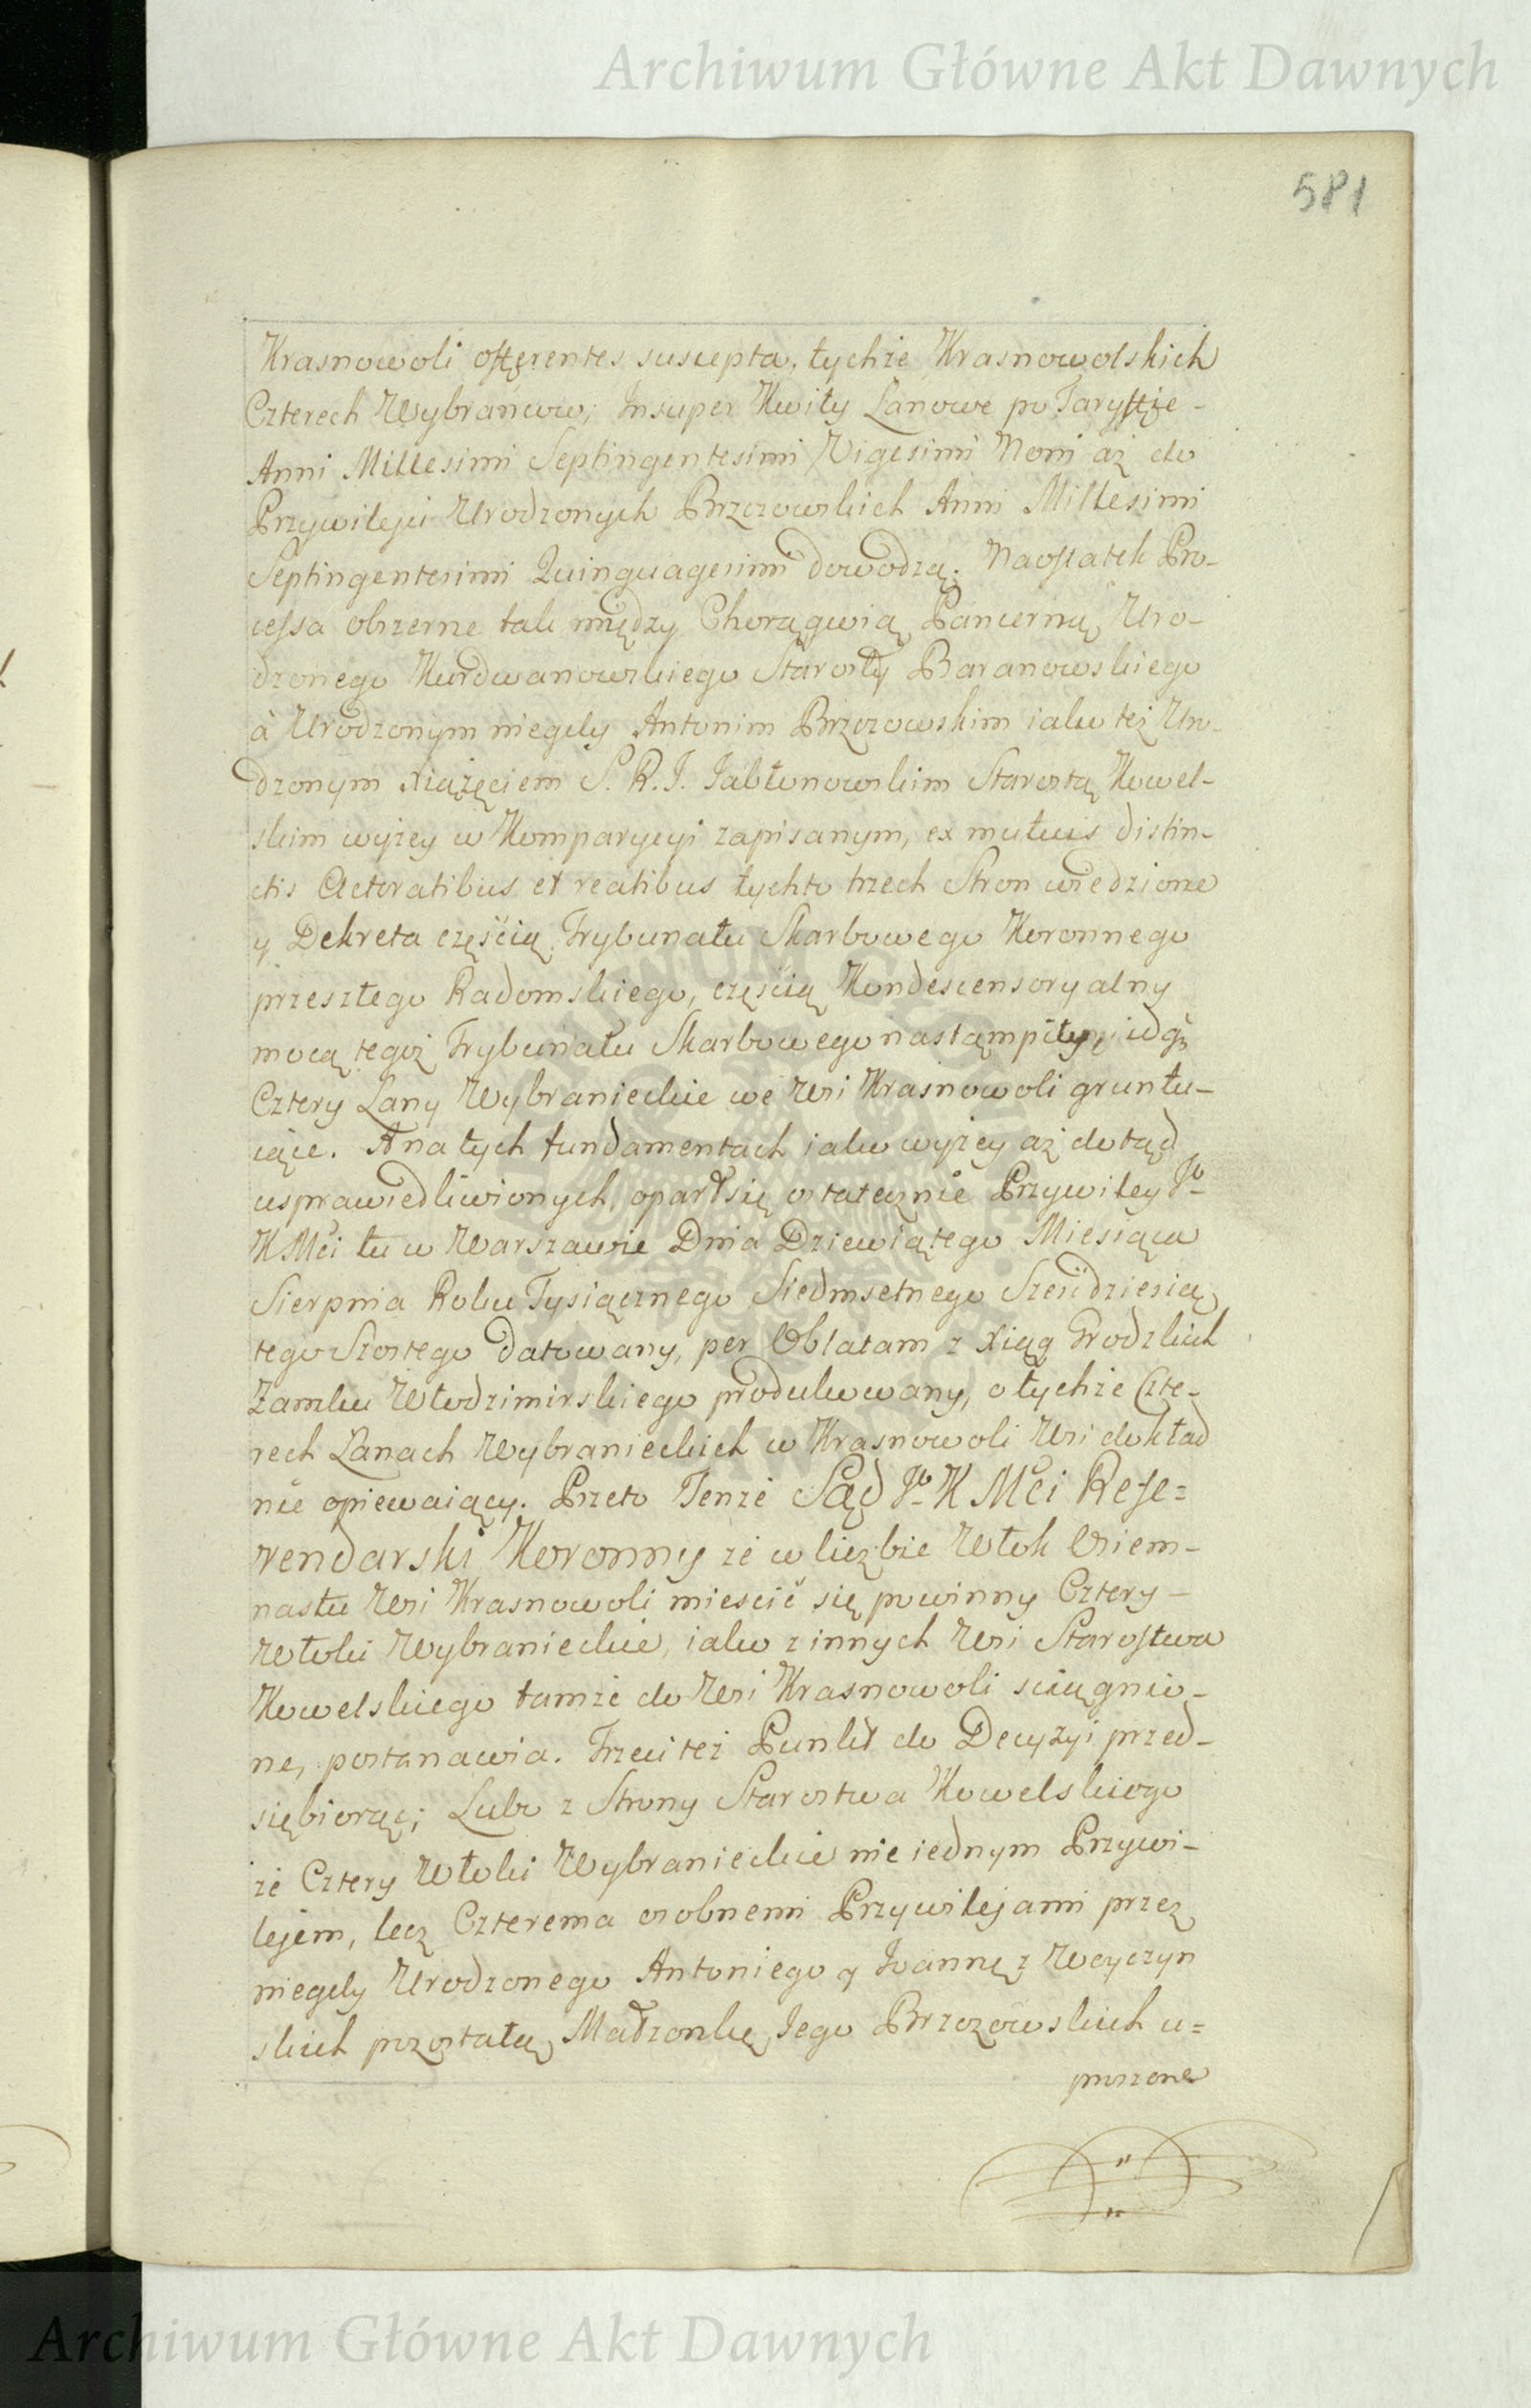 Archiwum Główne Akt Dawnych
581
Krasnowoli offerentes suscepta, tychże Krasnowolskich
Czterech Wybrancow; Insuper Kwity Łanowe po Taryffie
Anni Millesimi Septingentesimi Vigesimi Noni aż do
Przywileju Urodzonych Brzozowskich Anni Millesimi
Septingentesimi Quinquagesimi dowodzą; Naostatek Pro-
cessa obszerne tak między Chorągwią Pancerną Uro-
dzonego Kurdwanowskiego Starosty Baranowskiego
à Urodzonym niegdy Antonim Brzozowskim iako też Uro-
dzonym Xiążęciem S. R. J. Jabłonowskim Starostą Kowel-
skim wyżey w Komparycyi zapisanym, ex mutuis distin-
ctis Actoratibus et reatibus tychto trzech Stron wiedzione
y Dekreta częścią Trybunału Skarbowego Koronnego
przeszłego Radomskiego, częścią Kondescensoryalny
mocą tegoż Trybunału Skarbowego nastąmpiłym,
Cztery Łany Wybranieckie we Wsi Krasnowoli gruntu-
iące. A na tych fundamentach iako wyżey aż dotąd
usprawiedliwionych, oparł się ostatecznie Przywiley Jo
K Mci tu w Warszawie Dnia Dziewiątego Miesiąca
Sierpnia Roku Tysiącznego Siedmsetnego Sześćdziesią
tego Szostego datowany, per Oblatam z Xiąg Grodzkich
Zamku Włodzimirskiego produkowany, o tychże Czte-
rech Łanach Wybranieckich w Krasnowoli Wsi dokład
nie opiewaiący. Przeto Tenże Sąd Jo K Mci Refe=
rendarski Koronny że w liczbie Włok Osiem-
nastu Wsi Krasnowoli mieścić się powinny Cztery-
Włoki Wybranieckie, iako z innych Wsi Starostwa
Kowelskiego tamże do Wsi Krasnowoli sciągnio-
ne, postanawia. Trzeci też Punkt do Decyzyi przed-
siębiorąc; Lubo z Strony Starostwa Kowelskiego
że Cztery Włoki Wybranieckie nie iednym Przywi-
lejem, lecz Czterema osobnemi Przywilejami przez
niegdy Urodzonego Antoniego y Joannę z Woyczyn
skich pozostałą Małżonkę Jego Brzozowskich u=
proszone
Archiwum Główne Akt Dawnych